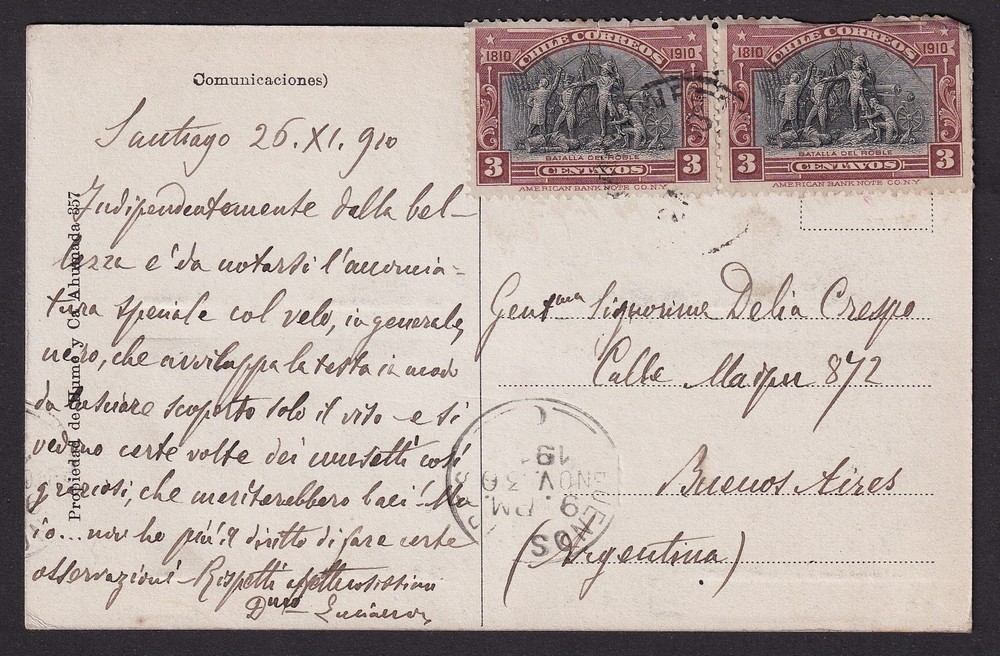 Comunicaciones)
Santiago 26.XI.910
Indipendentemente dalla bel-
lezza e' da notarsi l'acconcia=
tura speciale col velo, in generale,
nero, che avviluppa la testa in modo
da lasciare scoperto solo il viso - e si
vedono certe volte dei musetti così
graziosi, che meriterebbero baci! Ma
io... non ho più il diritto di fare certe
osservazioni - Rispetti affettuosissimi
Propiedad de Hume y Ca Ahumada 357
CHILE CORREOS
1810 1910
BATALLA DEL ROBLE
3 CENTAVOS 3
AMERICAN BANK NOTE CO. N.Y.
CHILE CORREOS
1810 1910
BATALLA DEL ROBLE
3 CENTAVOS 3
AMERICAN BANK NOTE CO. N.Y.
Gentma Signorina Delia Crespo
Calle Maipu 872
Buenos Aires
(Argentina)
ENOS
9. PM
NOV. 30
19